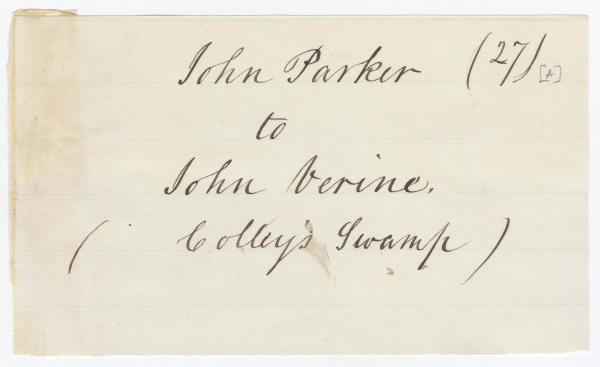 John Parker (27) [A]
to
John Verine.
( Colley's Swamp )